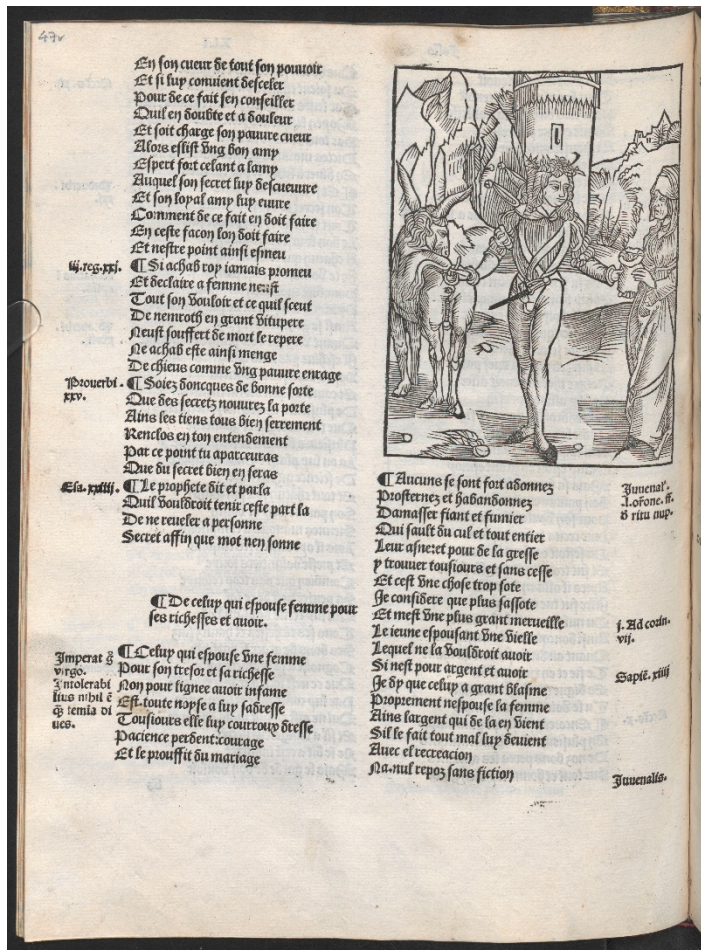 47v
En son cueur de tout son pouuoir
Et si luy conuient desceler
Pour de ce fait sen conseiller
Quil en doubte et a douleur
Et soit charge son pauure cueur
Alors eslist vng bon amy
Expert fort celant a lamy
Auquel son secret luy descueuure
Et son loyal amy luy euure
Comment de ce fait en doit faire
En ceste facon lon doit faire
Et nestre point ainsi esmeu
iij.reg.xxj.
¶ Si achab roy iamais promeu
Et declaire a femme neust
Tout son vouloir et ce quil sceut
De nemroth en grant vitupere
Neust souffert de mort le repere
Ne achab este ainsi menge
De chiens comme vng pauure enrage
Prouerbi.
xxv.
¶ Soiez doncques de bonne sorte
Que des secretz nouurez la porte
Ains les tiens tous bien serrement
Renclos en ton entendement
Par ce point tu aparceuras
Que du secret bien en seras
Esa. xxiiij.
¶ Le prophete dit et parla
Quil vouldroit tenir ceste part la
De ne reueler a personne
Secret affin que mot nen sonne
¶ De celuy qui espouse femme pour
ses richesses et auoir.
Imperat q̃
virgo.
Intolerabi
lius nihil ẽ
q̃ femia di
ues.
¶ Celuy qui espouse vne femme
Pour son tresor et sa richesse
Non pour lignee auoir infame
Est.toute noyse a luy sadresse
Tousiours elle luy courroux dresse
Pacience perdent:courage
Et le prouffit du mariage
¶ Aucuns se sont fort adonnez
Prosternez et habandonnez
Damasser fiant et fumier
Qui sault du cul et tout entier
Leur asne:et pour de la gresse
y trouuer tousiours et sans cesse
Et cest vne chose trop sote
Je considere que plus fassote
Et mest vne plus grant merueille
Le ieune espousant vne vielle
Lequel ne la vouldroit auoir
Si nest pour argent et auoir
Je dy que celuy a grant blasme
Proprement nespouse la femme
Ains largent qui de la en vient
Sil le fait tout mal luy deuient
Auec el recreacion
Na.nul repoz sans fiction
Juuenal'.
.l. oŕone. ff.
d̕ ritu nup.
j. Ad corin.
vij.
Sapiẽ. xiiij
Juuenalis.